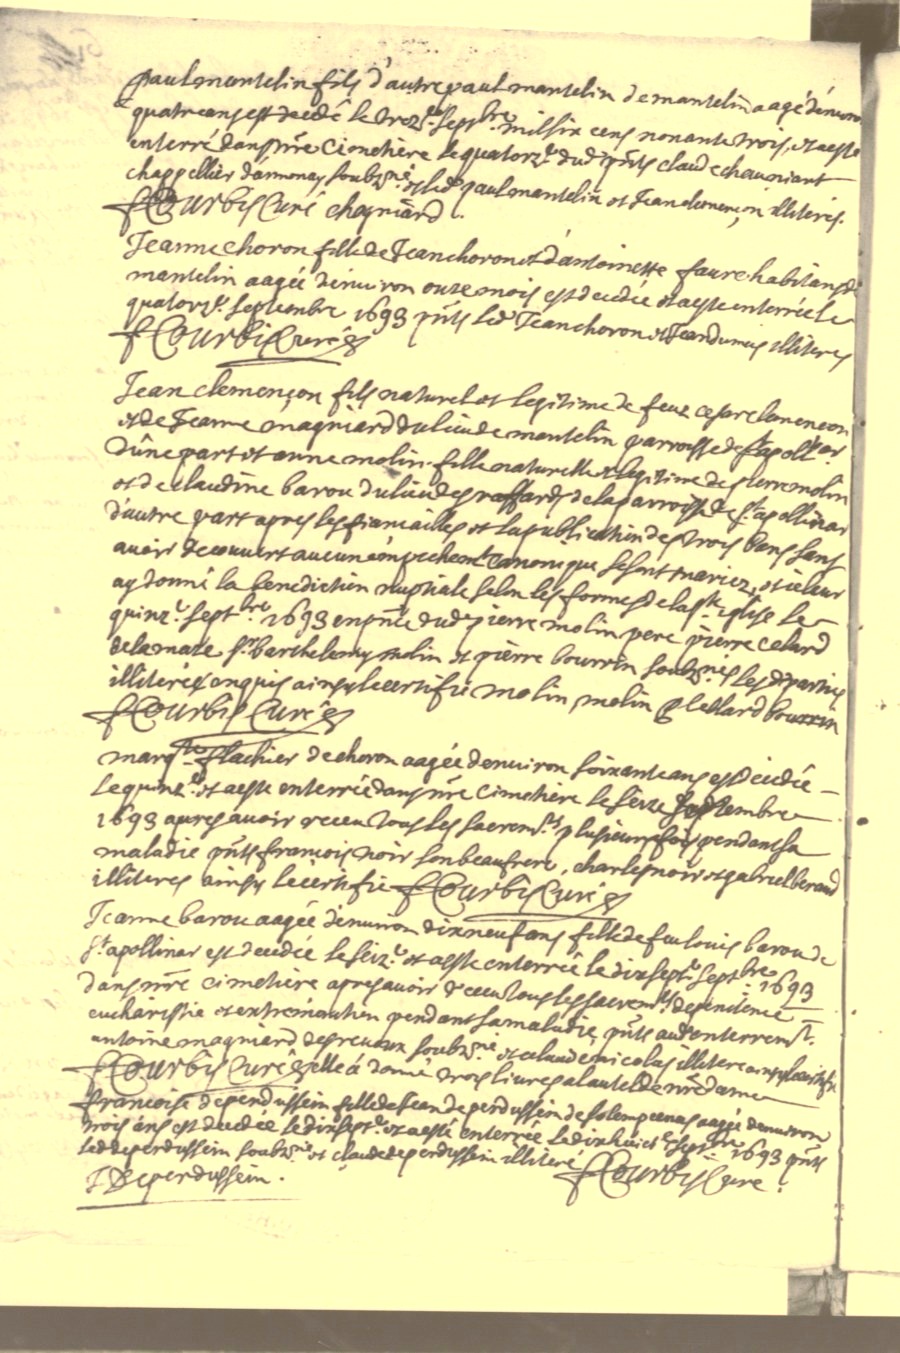 paul mantelin fils d'autre paul mantelin de mantelin aagé d'environ
quatre ans est decedé le trez.e sept.bre mil six cens nonante trois, et a esté
enterré dans n.re cimetière le quatorz.e dud. p.nts claude
chappellier d'annonay soubz.né et led. paul mantelin et Jean clemençon illiteres.
Courbis Curé
Jeanne choron fille de Jean choron et d'antoinette faure habitans de
mantelin aagée d'environ onze mois est decedée et a esté enterrée le
quatorz.e septembre 1693 p.nts led. Jean choron et Jean dumas illiteres
Courbis Curé
Jean clemençon fils naturel et legitime de feuz cesar clemencon
et de Jeanne magniard du lieu de mantelin parroisse de S.t apoll.ar
d'une part et anne molin fille naturelle et legitime de pierre molin
et de claudine barou du lieu des raffards de la parroisse de S.t apollinar
d'autre part apres les fiancailles et la publication des trois bans sans
avoir decouvert aucun empechem.t canonique se sont mariez, et ie leur
ay donné la benediction nuptiale selon les formes de la s.te eglise le
quinz.e sept.bre 1693 en p.nce dud. pierre molin pere pierre celard
de la mate s.r barthelemy molin et pierre bourrin soubz.nés les parties
illiterées enquis ainsy le certifie molin, molin P Cellard bourrin
Courbis Curé
marg.te flachier de choron aagée d'environ soixante ans est decedée
le quinz.e et a esté enterrée dans n.re cimetière le seize septembre
1693 apres avoir receu tous les sacrem.ts plusieurs fois pendant sa
maladie p.nts francois noir son beaufrere, charles noir et gabriel beraud
illiteres ainsy le certifie Courbis Curé
Jeanne barou aagée d'environ dix neuf ans fille de feu louis barou de
S.t apollinar est decedée le seiz.e et a esté enterrée le dix sept.e sept.bre 1693
dans n.re cimetière apres avoir receu tous les sacrem.ts de penitence
eucharistie et extremonction pendant sa maladie, p.nts aud. enterrem.t
antoine magniard des preaux soubz.né et claude nicolas illitere ainsy le certifie
Courbis Curé elle a donné trois livres a lautel de n.re dame
francoise deperdussin fille de Jean deperdussin de aagée d'environ
trois ans est decedée le dix sept.e et a esté enterrée le dix huict.e sept.bre 1693 p.nts
led. deperdussin soubz.né et claude deperdussin illiteré Courbis Cure.
J Deperdussin.